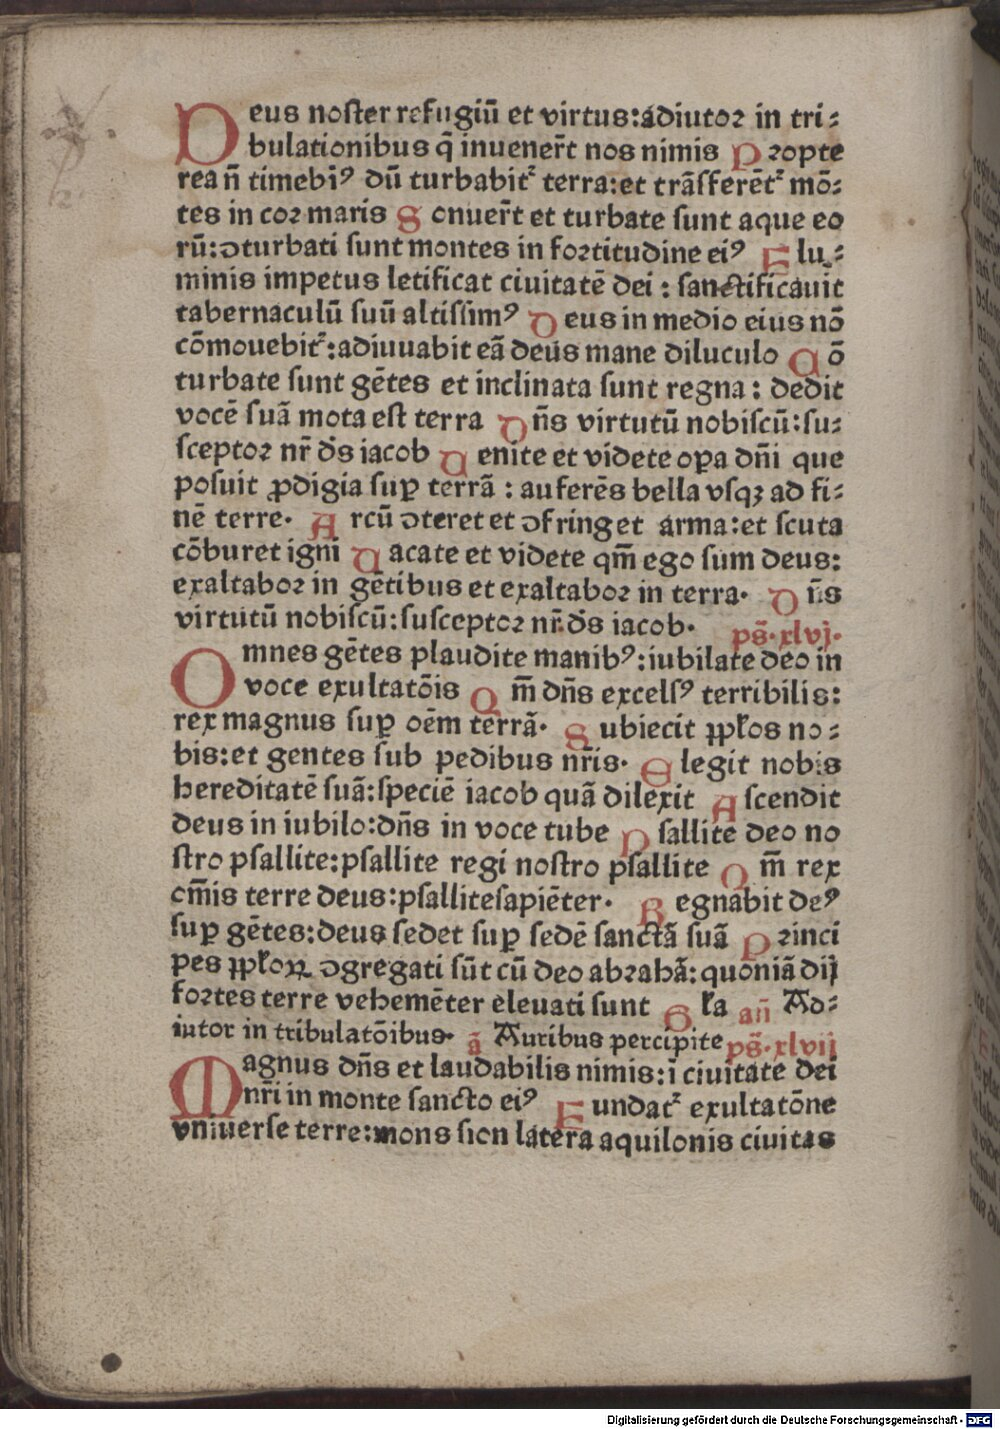 Deus noster refugiū et virtus:adiutoꝛ in tri⸗
bulationibus q̄ inuener̄t nos nimis Pꝛopte
rea n̄ timebim⁹ dū turbabit᷑ terra:et trāsferēt᷑ mō⸗
tes in coꝛ maris Sonuer̄t et turbate sunt aque eo
rū:ↄturbati sunt montes in foꝛtitudine ei⁹ Flu⸗
minis impetus letificat ciuitatē dei : sanctificauit
tabernaculū suū altissim⁹ Deus in medio eius nō
cōmouebit᷑:adiuuabit eā deus mane diluculo Cō
turbate sunt gētes et inclinata sunt regna : dedit
vocē suā mota est terra Dn̄s virtutū nobiscū:su⸗
sceptoꝛ nr̄ ds̄ iacob Uenite et videte oꝑa dn̄i que
posuit ꝓdigia suꝑ terrā : auferēs bella vsqꝫ ad fi⸗
nē terre· Arcū ↄteret et ↄfringet arma:et scuta
cōburet igni Uacate et videte qm̄ ego sum deus:
exaltaboꝛ in gētibus et exaltaboꝛ in terra· Dn̄s
virtutū nobiscū:susceptoꝛ nr̄ ds̄ iacob· ps̄·xlvj·
Omnes gētes plaudite manib⁹:iubilate deo in
voce exultatōis Qm̄ dn̄s excels⁹ terribilis:
rex magnus suꝑ oēm terrā· Subiecit ꝓpl̄os no⸗
bis:et gentes sub pedibus nr̄is· Elegit nobis
hereditatē suā:speciē iacob quā dilexit Ascendit
deus in iubilo:dn̄s in voce tube Psallite deo no
stro psallite:psallite regi nostro psallite Qm̄ rex
om̄is terre deus:psallite sapiēter· Regnabit de⁹
suꝑ gētes:deus sedet suꝑ sedē sanctā suā Pꝛinci
pes ꝓpl̄oꝝ ↄgregati sūt cū deo abꝛahā:quoniā dij
foꝛtes terre vehemēter eleuati sunt Gl̄a an̄ Ad⸗
iutor in tribulatōibus· ā Auribus percipite ps̄·xlvij
Magnus dn̄s et laudabilis nimis:ī ciuitate dei
nr̄i in monte sancto ei⁹ Fundat᷑ exultatōne
vniuerse terre:mons sion latera aquilonis ciuitas
Digitalisierung gefördert durch die Deutsche Forschungsgemeinschaft - DFG